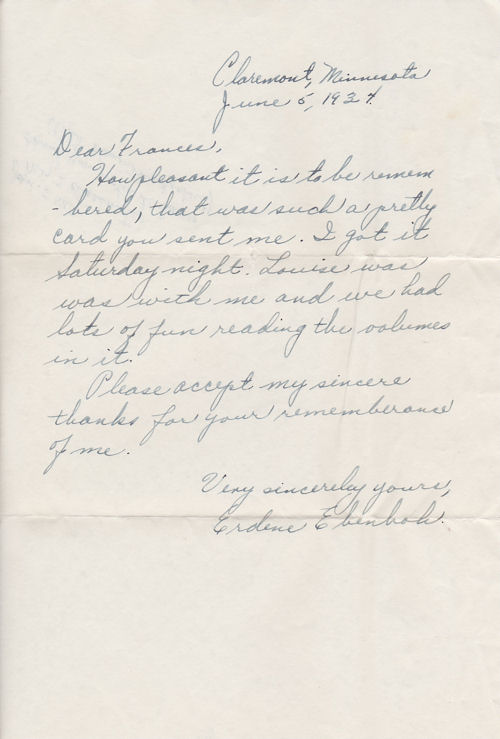 Claremont, Minnesota
June 5, 1934.
Dear Frances,
How pleasant it is to be remem
-bered, that was such a pretty
card you sent me. I got it
Saturday night. Louise was
was with me and we had
lots of fun reading the volumes
in it.
Please accept my sincere
thanks for your rememberance
of me.
Very sincereley yours,
Erdene